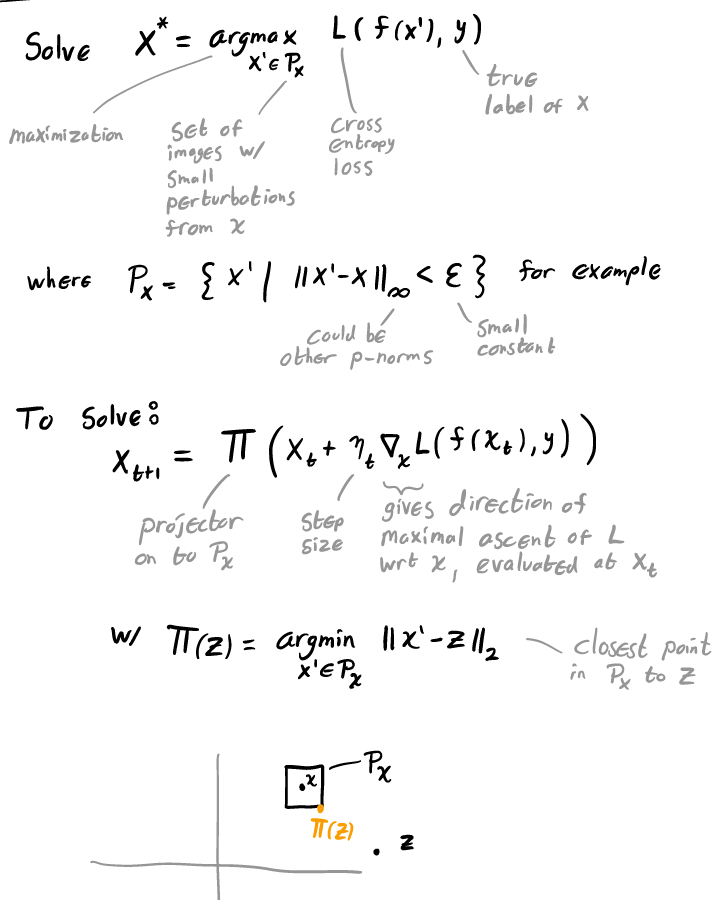 Solve X* = argmax L(f(x'), y)
x'∈Pₓ
maximization
set of images w/ small perturbations from x
cross entropy loss
true label of x
where Pₓ = { x' | ||x'-x||∞ < ε } for example
could be other p-norms
small constant
To solve:
xₜ₊₁ = Π (xₜ + ηₜ ∇ₓ L(f(xₜ), y))
projector on to Pₓ
step size
gives direction of maximal ascent of L wrt x, evaluated at xₜ
w/ Π(z) = argmin ||x'-z||₂
x'∈Pₓ
closest point in Pₓ to z
x
Pₓ
Π(z)
z